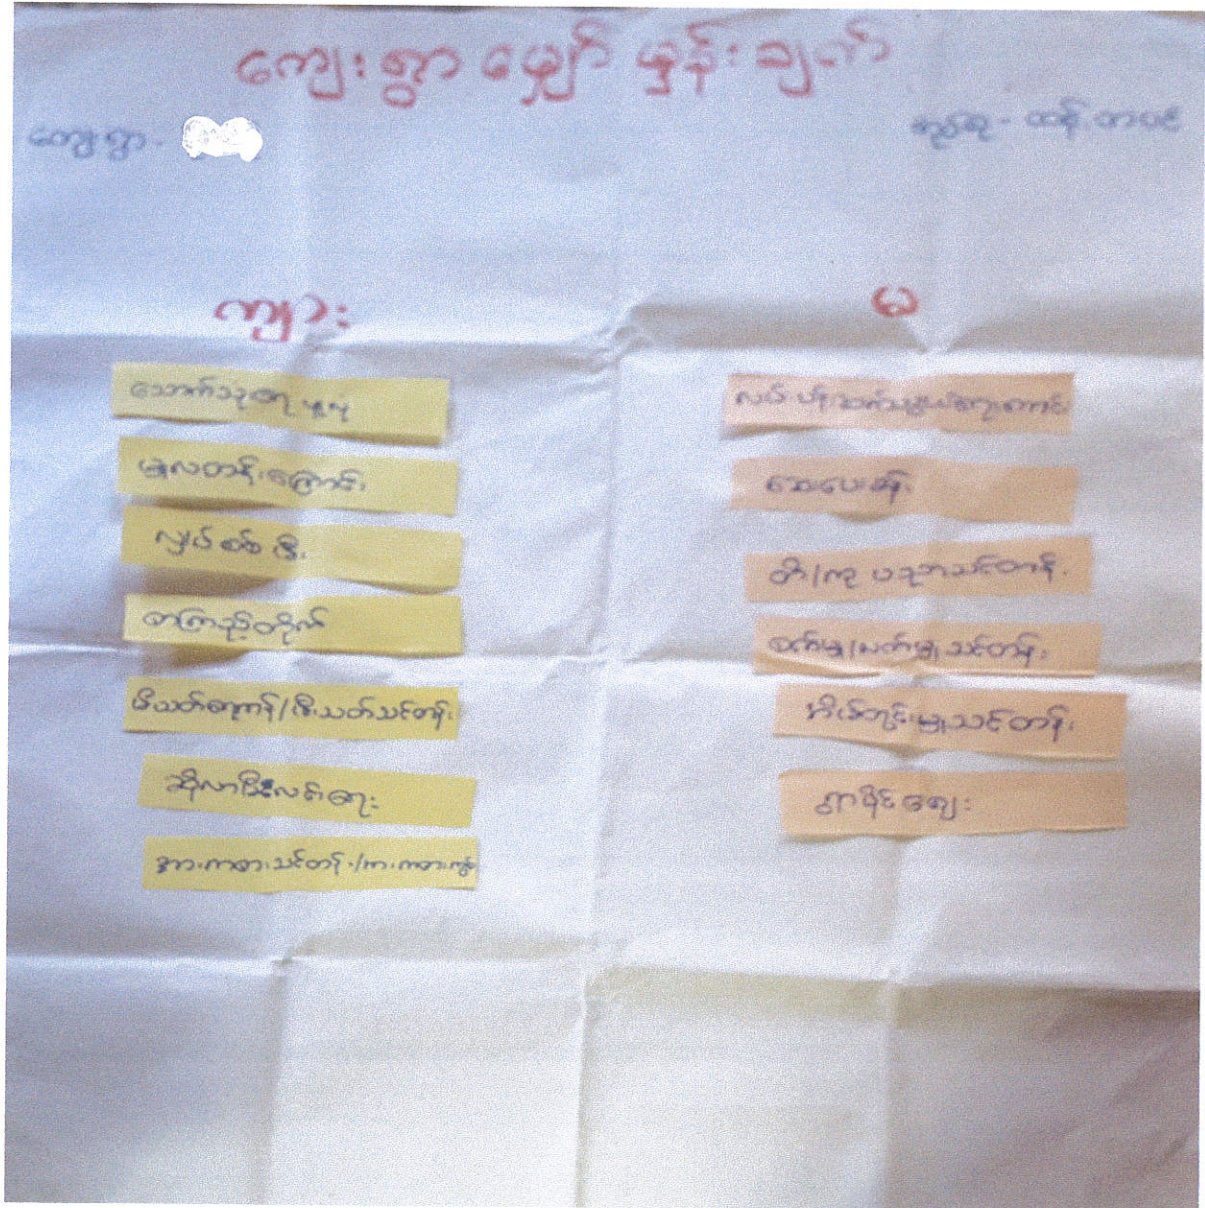 ကျေးရွာ မျှော်မှန်းချက်
ကျေးရွာ -
အုပ်စု - ထန်းတပင်
ကျား
သောက်သုံးရေ ရရှိမှု
မူလတန်းကျောင်း
လျှပ်စစ်မီး
စာကြည့်တိုက်
မီးသတ်ရေကန်/မီးသတ်သင်တန်း
ဆိုလာမီးလင်းရေး
အားကစားသင်တန်း/အားကစားကွင်း
မ
လမ်းပန်းဆက်သွယ်ရေးကောင်း
ဆေးပေးခန်း
တိ/ကု ပညာသင်တန်း
စက်မှု/လက်မှု သင်တန်း
အိမ်တွင်းမှုသင်တန်း
ရွာပိုင်ဈေး